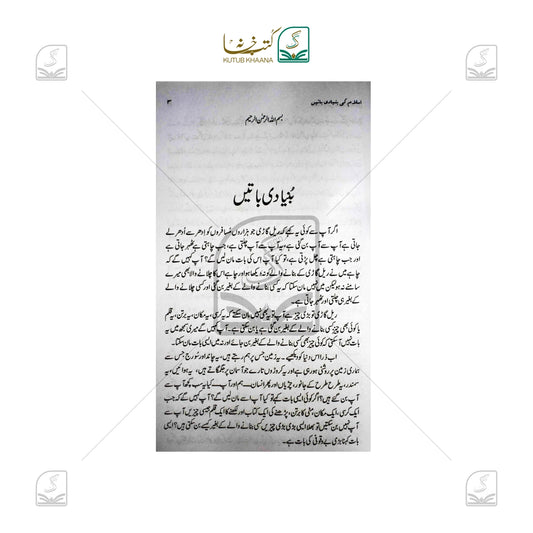 کتب خانہ
KUTUB KHAANA
اسلام کی بنیادی باتیں
۳
بسم اللہ الرحمٰن الرحیم
بُنیادی باتیں
اگر آپ سے کوئی یہ کہے کہ ریل گاڑی جو ہزاروں مسافروں کو اِدھر سے اُدھر لے
جاتی ہے آپ سے آپ بن گئی ہے، یہ آپ سے آپ چلتی ہے، جب چاہتی ہے ٹھہر جاتی ہے
اور جب چاہتی ہے چل پڑتی ہے، تو کیا آپ اس کی بات مان لیں گے؟ آپ کہیں گے کہ
چاہے میں نے ریل گاڑی کے بنانے والے کو نہ دیکھا ہو اور چاہے اس کا چلانے والا بھی میرے
سامنے نہ ہو لیکن میں نہیں مان سکتا کہ یہ کسی بنانے والے کے بغیر بن گئی اور کسی چلانے والے
کے بغیر ہی چلتی اور ٹھہر جاتی ہے۔
ریل گاڑی تو بڑی چیز ہے آپ تو یہ بھی نہیں مان سکتے کہ یہ کرسی، یہ مکان، یہ برتن، یہ قلم
یا کوئی بھی چیز کسی بنانے والے کے بغیر بن گئی ہے یا بن سکتی ہے۔ آپ کہیں گے میری سمجھ میں یہ
بات نہیں آ سکتی کہ کوئی چیز بھی کسی بنانے والے کے بغیر بن جائے اور نہ میں ایسی بات مان سکتا۔
اب ذرا اس دنیا کو دیکھیے۔ یہ زمین جس پر ہم رہتے ہیں، یہ چاند اور سورج جس سے
ہماری زمین پر روشنی ہو رہی ہے اور یہ کروڑوں تارے جو آسمان پر جگمگاتے ہیں، یہ ہوائیں، یہ
سمندر، یہ طرح طرح کے جانور، چڑیاں اور پھر انسان۔ ہم اور آپ۔ کیا یہ سب کچھ آپ سے
آپ بن گئے ہیں؟ اگر کوئی ایسی بات کہے تو کیا آپ اسے مان لیں گے؟ آپ کہیں گے کہ جب
ایک کرسی، ایک مکان، مٹی کا برتن، پڑھنے کی ایک کتاب اور لکھنے کا ایک قلم جیسی چیزیں آپ سے
آپ نہیں بن سکتیں تو بھلا ایسی بڑی بڑی چیزیں کسی بنانے والے کے بغیر کیسے بن سکتی ہیں؟ ایسی
بات کہنا بڑی بے وقوفی کی بات ہے۔